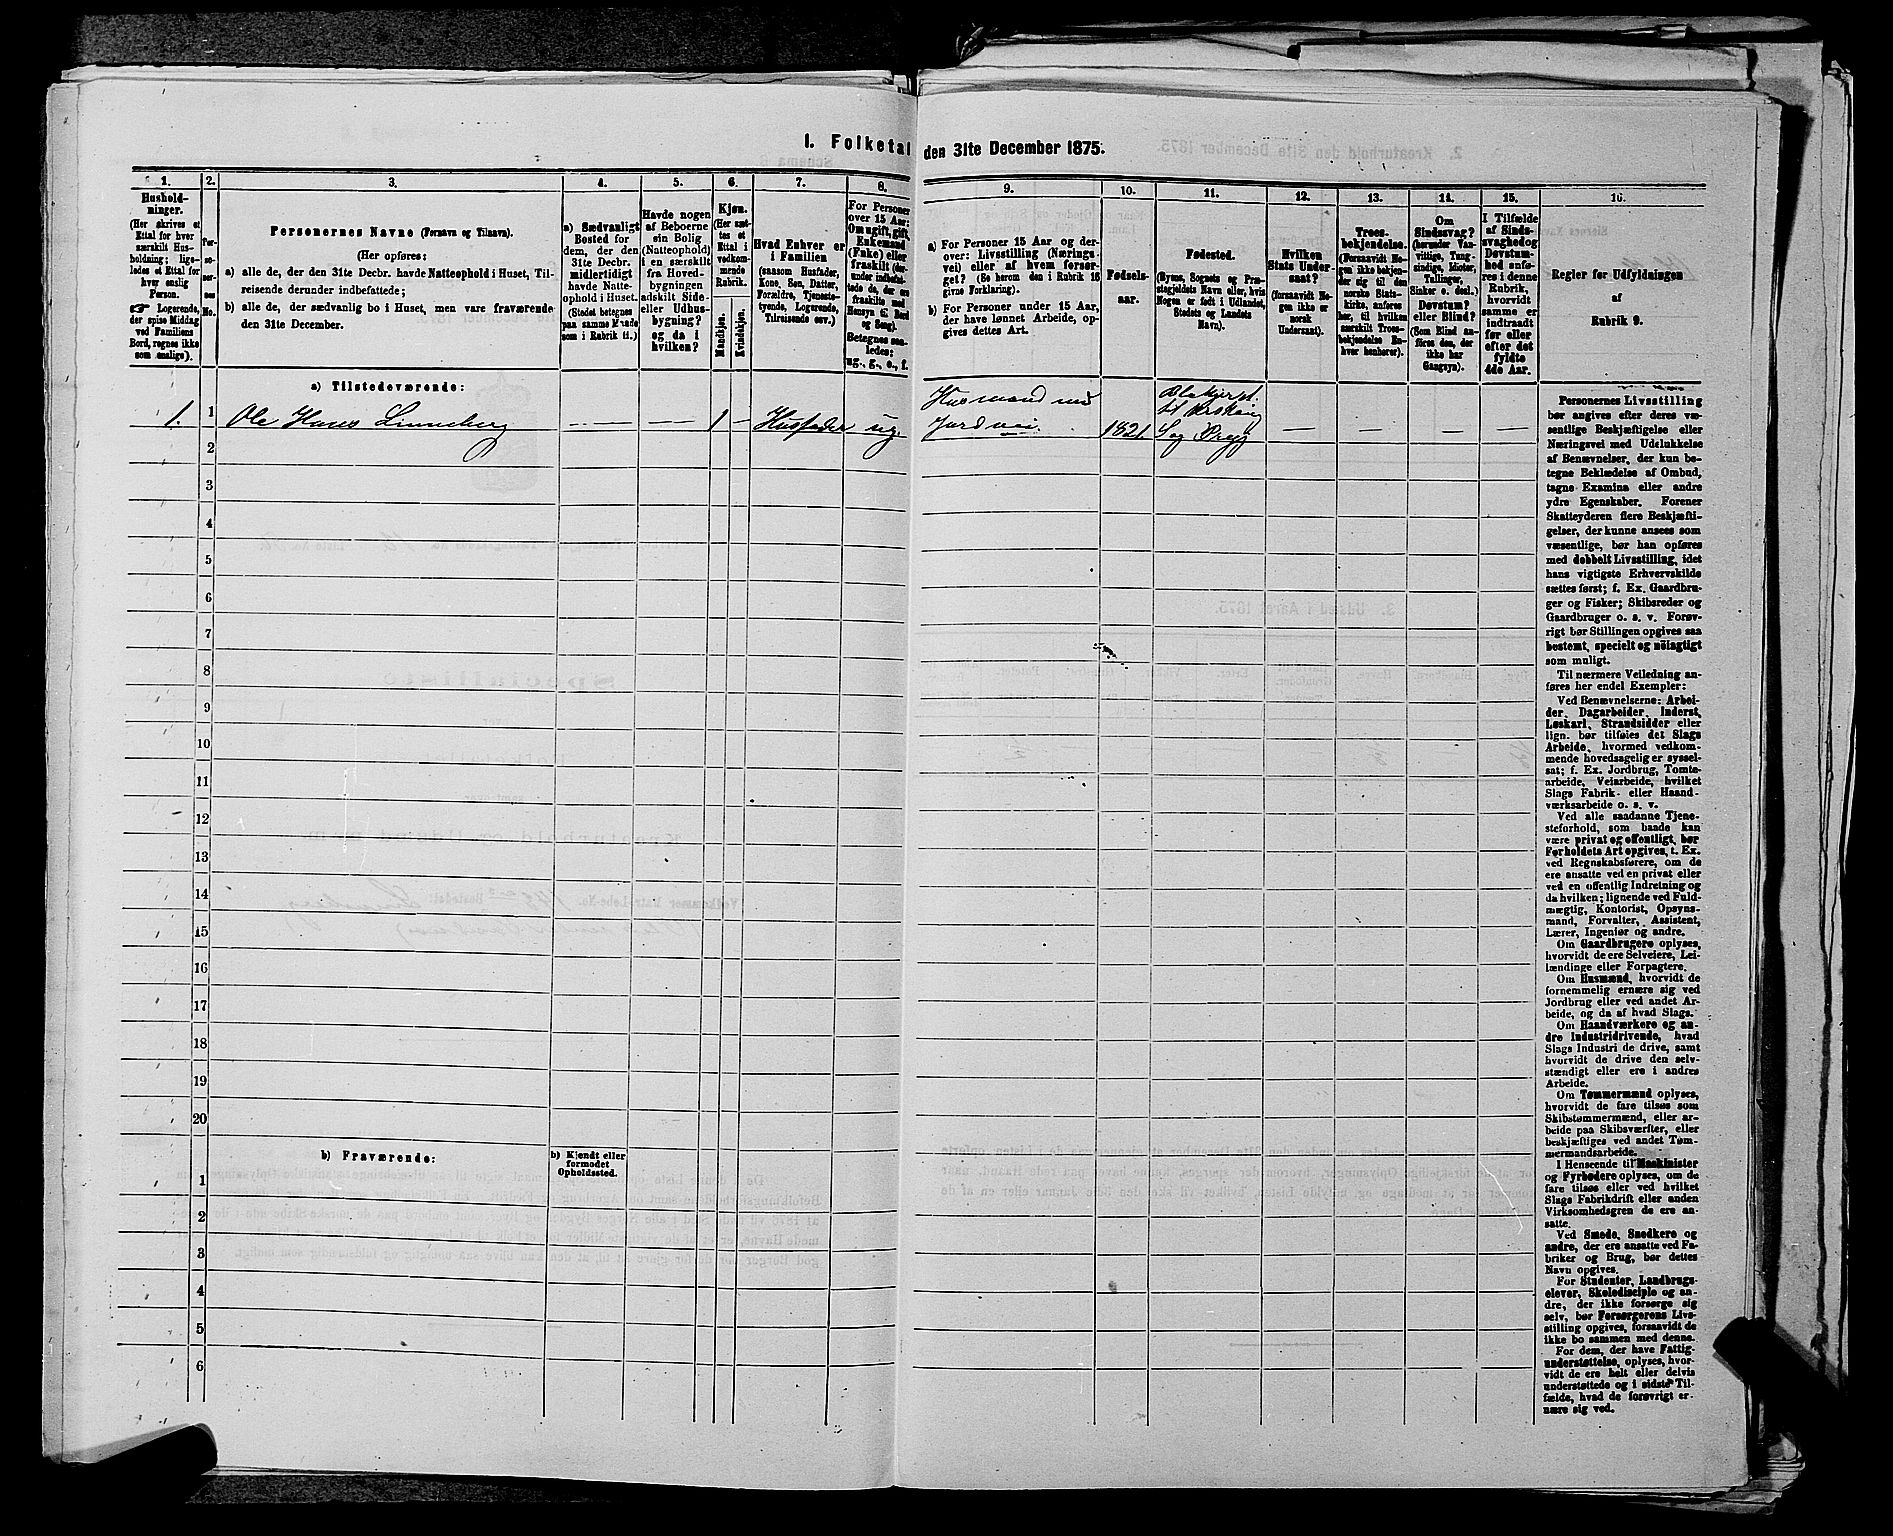 1. Folketal den 31te December 1875.
1. 2. 3. 4. 5. 6. 7. 8. 9. 10. 11. 12. 13. 14. 15. 16.
Hushold-
ninger.
(Her skrives et
Ettal for hver
særskilt Hus-
holdning; lige-
ledes et Ettal for
hver enslig
Person.
☞ Logerende,
der spise Middag
ved Familiens
Bord, regnes ikke
som enslige).
Per-
so-
ner-
nes
No.
Personernes Navne (Fornavn og Tilnavn).
(Her opføres:
a) alle de, der den 31te Decbr. havde Natteophold i Huset, Til-
reisende derunder indbefattede;
b) alle de, der sædvanlig bo i Huset, men vare fraværende
den 31te December.
a) Sædvanligt
Bosted for
dem, der den
31te Decbr.
midlertidigt
havde Natte-
ophold i Huset.
(Stedet betegnes
paa samme Maade
som i Rubrik 11.)
Havde nogen
af Beboerne
ein Bolig
(Natteophold)
i en særskilt
fra Hoved-
bygningen
adskilt Side-
eller Udhus-
bygning?
og da i
hvilken?
Kjøn.
(Her sæt-
tes et
Ettal i
vedkom-
mende
Rubrik.
Mandkjøn.
Kvindekjøn.
Hvad Enhver er
i Familien
(saasom Husfader,
Kone, Søn, Datter,
Forældre, Tjeneste-
tyende, Logerende,
Tilreisende osv.)
For Personer
over 15 Aar:
Om ugift, gift,
Enkemand
(Enke) eller
fraskilt (der-
under indbefat-
tede de, der ere
fraskilte med
Hensyn til Bord
og Seng).
Betegnes saa-
ledes:
ug., g., e., f.
a) For Personer 15 Aar og der-
over: Livsstilling (Nærings-
vei) eller af hvem forsør-
get? (Se herom den i Rubrik 16
givne Forklaring).
b) For Personer under 15 Aar,
der have lønnet Arbeide, op-
gives dettes Art.
Fødsels-
aar.
Fødested.
(Byens, Sognets og Præ-
stegjeldets Navn eller, hvis
Nogen er født i Udlandet,
Stedets og Landets
Navn).
Hvilken
Stats Under-
saat?
(forsaavidt No-
gen ikke er
norsk
Undersaat).
Troes-
bekjendelse.
(Forsaavidt No-
gen ikke bekjen-
der sig til den
norske Stats-
kirke, anføres
her, til hvilken
særskilt Troes-
bekjendelse En-
hver henhører).
Om
Sindssvag?
(herunder Van-
vittige, Tung-
sindige, Idioter,
Tullinger,
Sinker o. desl.)
Døvstum?
eller Blind?
(Som Blind an-
føres den, der
ikke har
Gangsyn).
I Tilfælde
af Sinds-
svaghed og
Døvstum-
hed anfø-
res i denne
Rubrik,
hvorvidt
samme er
indtraadt
før eller
efter det
fyldte
4de Aar.
Regler for Udfyldningen
af
Rubrik 9.
a) Tilstedeværende:
1. 1 Ole Hans Linneberg — — 1 — Husfader ug. Husmand med
Jord 1821. — — — —
2
3
4
5
6
7
8
9
10
11
12
13
14
15
16
17
18
19
20
b) Fraværende:
b) Kjendt eller
formodet
Opholdssted.
1
2
3
4
5
6
Personernes Livsstilling
bør angives efter deres væ-
sentlige Beskjæftigelse eller
Næringsvei med Udelukkelse
af Benævnelser, der kun be-
tegne Beklædelse af Ombud,
tagne Examina eller andre
ydre Egenskaber. Forener
Skatteyderen flere Beskjæfti-
gelser, der kunne ansees som
væsentlige, bør han opføres
med dobbelt Livsstilling, idet
hans vigtigste Erhvervskilde
sættes først; f. Ex. Gaardbru-
ger og Fisker; Skibsreder og
Gaardbruger o. s. v. Forøv-
rigt bør Stillingen opgives saa
bestemt, specielt og nöiagtigt
som muligt.
Til nærmere Veiledning an-
føres her endel Exempler:
Ved Benævnelserne: Arbei-
der, Dagarbeider, Inderst,
Løskarl, Strandsidder eller
lign. bør tilføies det Slags
Arbeide, hvormed vedkom-
mende hovedsagelig er syssel-
sat; f. Ex. Jordbrug, Tomte-
arbeide, Veiarbeide, hvilket
Slags Fabrik- eller Haand-
værksarbeide o. s. v.
Ved alle saadanne Tjene-
steforhold, som baade kan
være privat og offentligt, bør
Forholdets Art opgives, t. Ex.
ved Regnskabsførere, om de
ere ansatte ved en privat eller
ved en offentlig Indretning og
da hvilken; lignende ved Fuld-
mægtig, Kontorist, Opsyns-
mand, Forvalter, Assistent,
Lærer, Ingeniør og andre.
Om Gaardbrugere oplyses,
hvorvidt de ere Selveiere, Lei-
lændinge eller Forpagtere.
Om Husmænd, hvorvidt de
fornemmelig ernære sig ved
Jordbrug eller ved andet Ar-
beide, og da af hvad Slags.
Om Haandværkere og an-
dre Industridrivende, hvad
Slags Industri de drive, samt
hvorvidt de drive den selv-
stændigt eller ere i andres
Arbeide.
Om Tømmermænd oplyses,
hvorvidt de fare tilsøs som
Skibstømmermænd, eller ar-
beide paa Skibsværfter, eller
beskjæftiges ved andet Tøm-
mermandsarbeide.
I Henseende til Maskinister
og Fyrbødere oplyses, om de
fare tilsøs eller ved hvilket
Slags Fabrikdrift eller anden
Virksomhedsgren de ere an-
satte.
Ved Smede, Snedkere og
andre, der ere ansatte ved Fa-
briker og Brug, bør dettes
Navn opgives.
For Studenter, Landbrugs-
elever, Skoledisciple og an-
dre, der ikke forsørge sig
selv, bør Forsørgerens Livs-
stilling opgives, forsaavidt de
ikke bo sammen med denne.
For dem, der have Fattig-
understøttelse, oplyses, hvor-
vidt de ere helt eller delvis
understøttede og i sidste Til-
fælde, hvad de forøvrigt er-
nære sig ved.